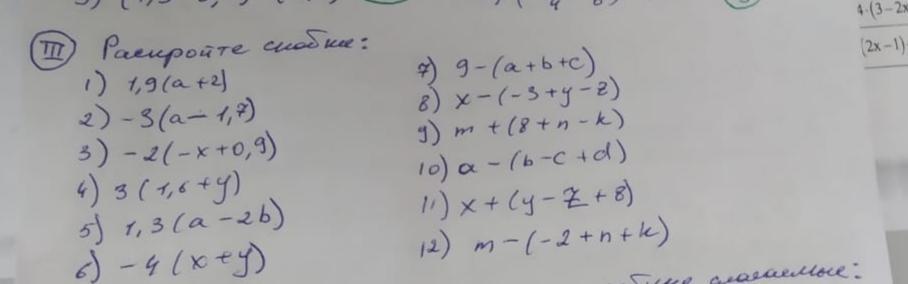 III Раскройте скобки:
1) 1,9(a+2)
2) -3(a-1,7)
3) -2(-x+0,9)
4) 3(1,6+y)
5) 1,3(a-2b)
6) -4(x+y)
7) 9-(a+b+c)
8) x-(-3+y-z)
9) m+(8+n-k)
10) a-(b-c+d)
11) x+(y-z+8)
12) m-(-2+n+k)
слагаемые:
4·(3-2x
(2x-1)